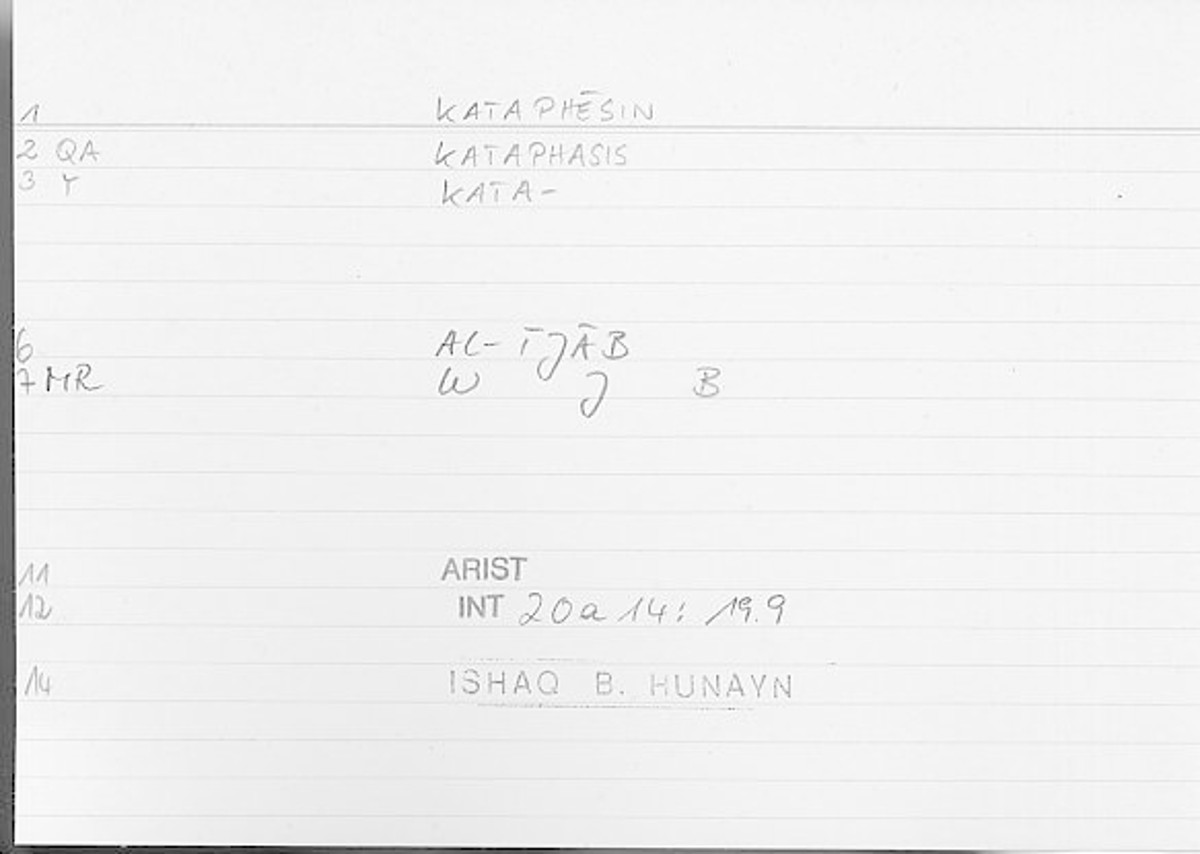 1 KATAPHĒSIN
2 QA KATAPHASIS
3 Y KATA-
6 AL-ĪJĀB
7 MR W J B
11 ARIST
12 INT 20a 14: 19.9
14 ISHAQ B. HUNAYN